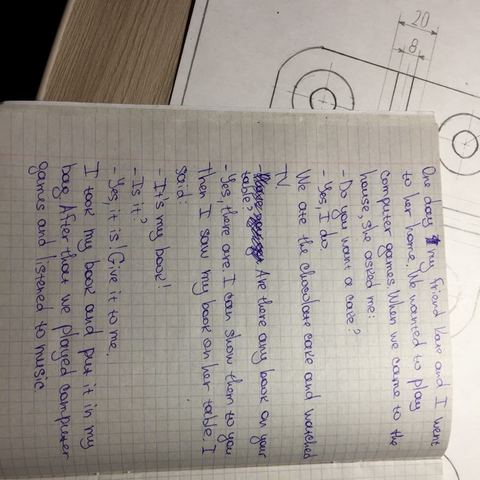 One day my friend Kate and I went
to her home. We wanted to play
computer games. When we came to the
house, she asked me:
- Do you want a cake?
- Yes, I do.
We ate the chocolate cake and watched
TV.
- Are there any book on your
table?
- Yes, there are. I can show them to you
Then I saw my book on her table. I
said:
- It's my book!
- Is it?
- Yes, it is! Give it to me.
I took my book and put it in my
bag. After that we played computer
games and listened to music.
20
8